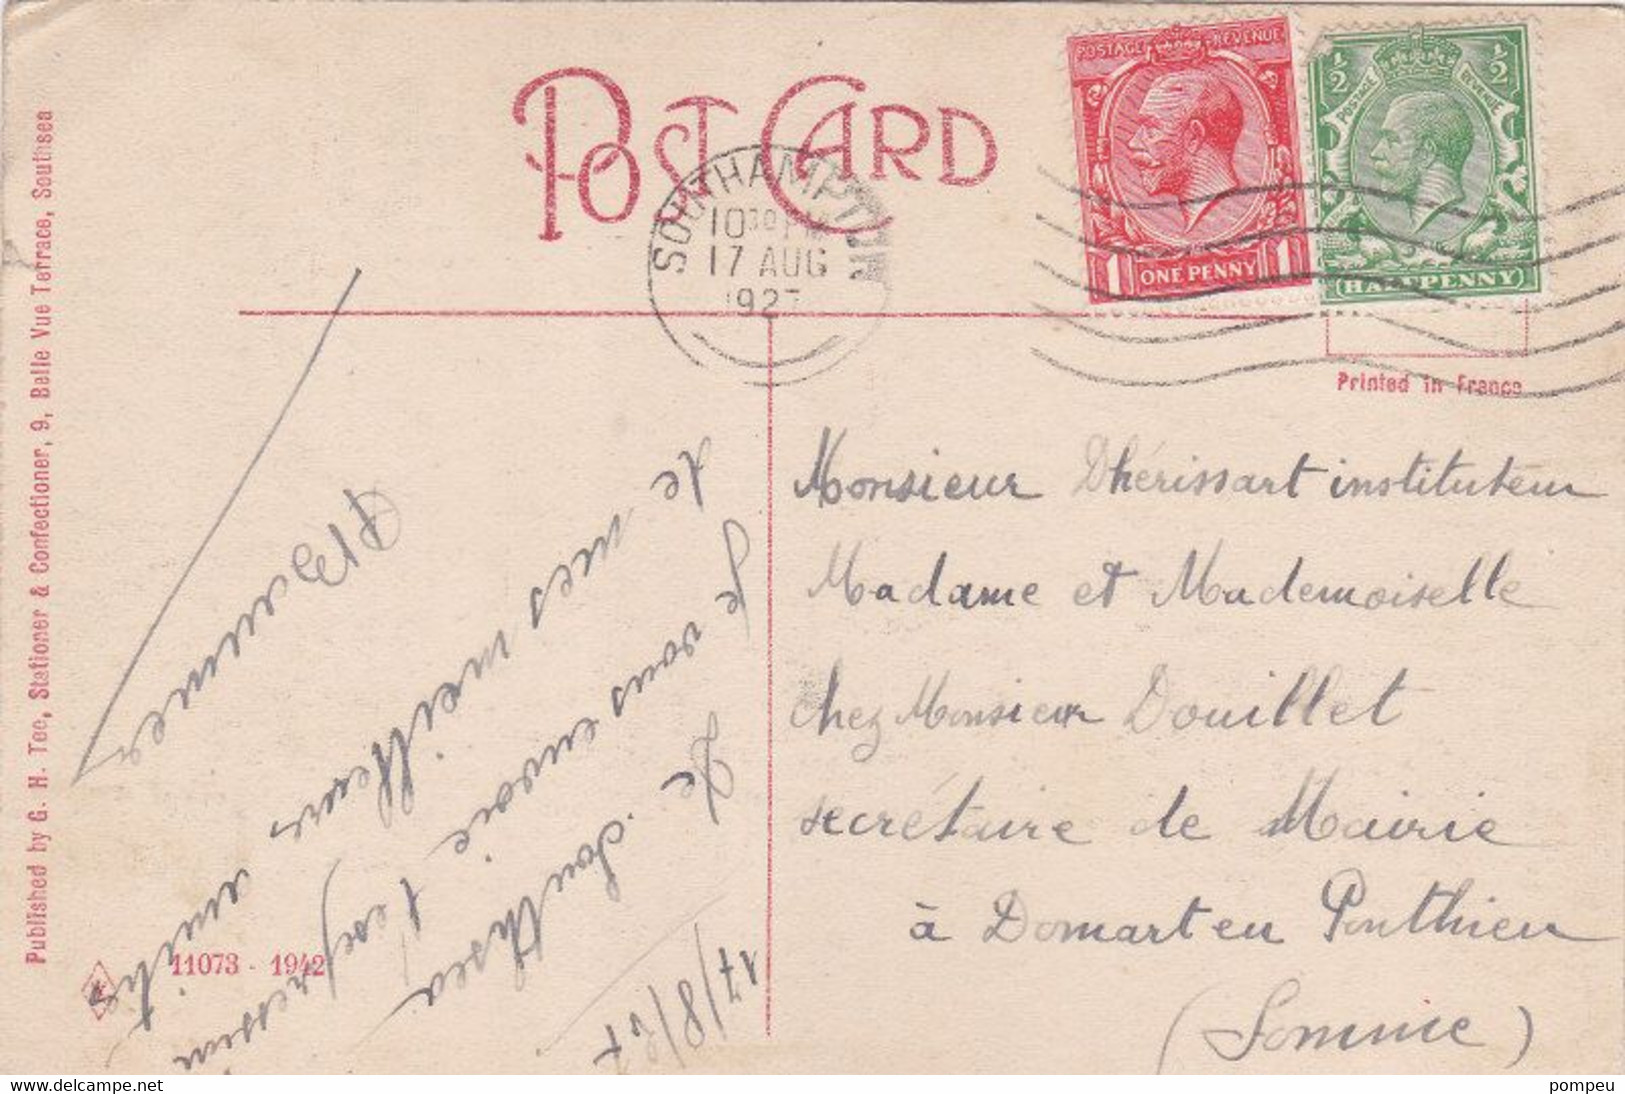 POST CARD
POSTAGE REVENUE
1 ONE PENNY 1
½ POSTAGE REVENUE ½
HALFPENNY
SOUTHAMPTON
10 30 PM
17 AUG
1927
Printed in France
Published by G. H. Tee, Stationer & Confectioner, 9, Belle Vue Terrace, Southsea
11073 - 1942
17/8/27
De Southsea
Je vous envoie l'expression
de mes meilleures
amitiés
Monsieur Dhérissart instituteur
Madame et Mademoiselle
chez Monsieur Douillet
secrétaire de Mairie
à Domart en Ponthieu
(Somme)
pompeu